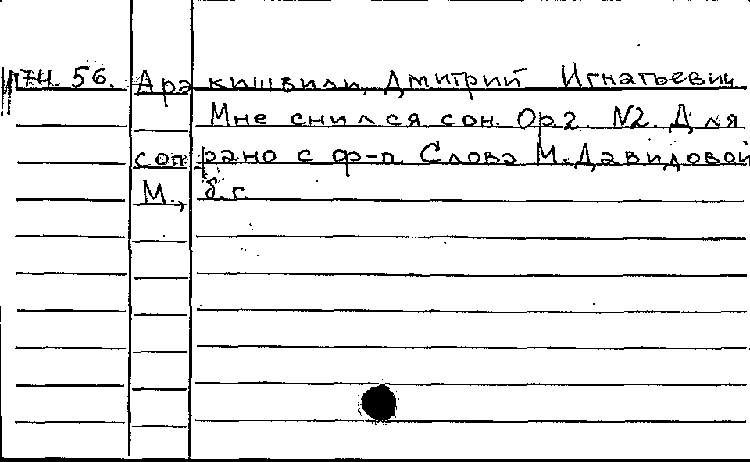 П74. 56. Аракишвили, Дмитрий Игнатьевич
Мне снился сон. Ор2 N2. Для
сопрано с ф-п. Слова М.Давидовой
М., б.г.